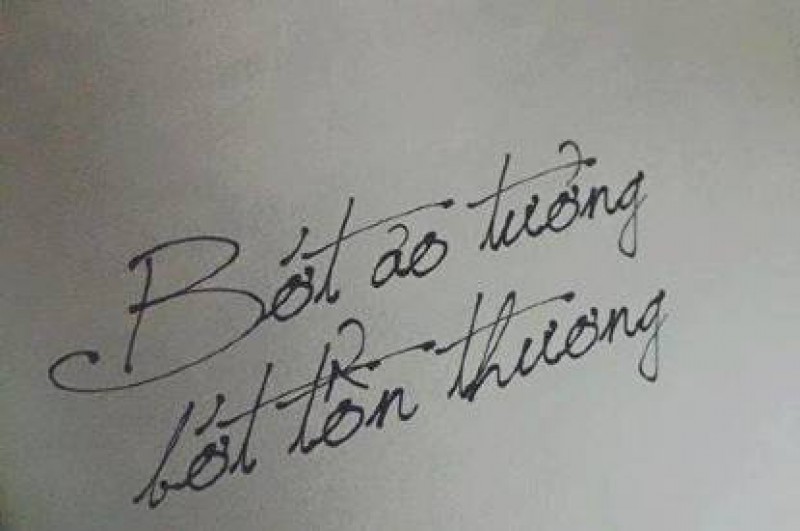 Bớt ảo tưởng
bớt tổn thương